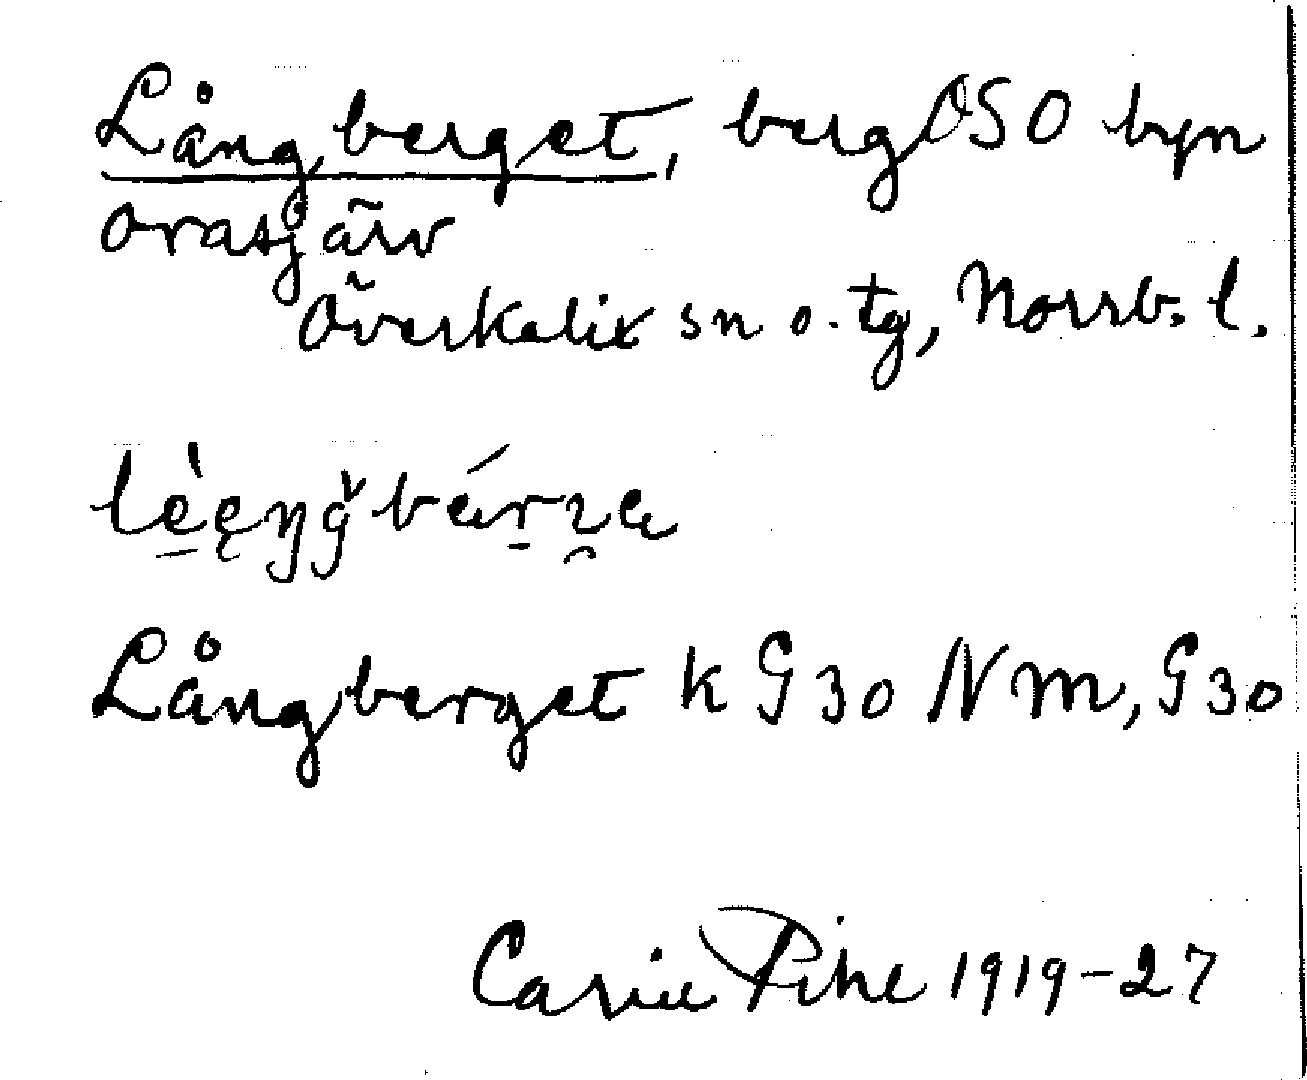 Långberget, berg OSO byn
Orasjärv
Överkalix sn o. tg, Norrb. l.
Långberget k G 30 NM, G 30
Carin Pihl 1919-27